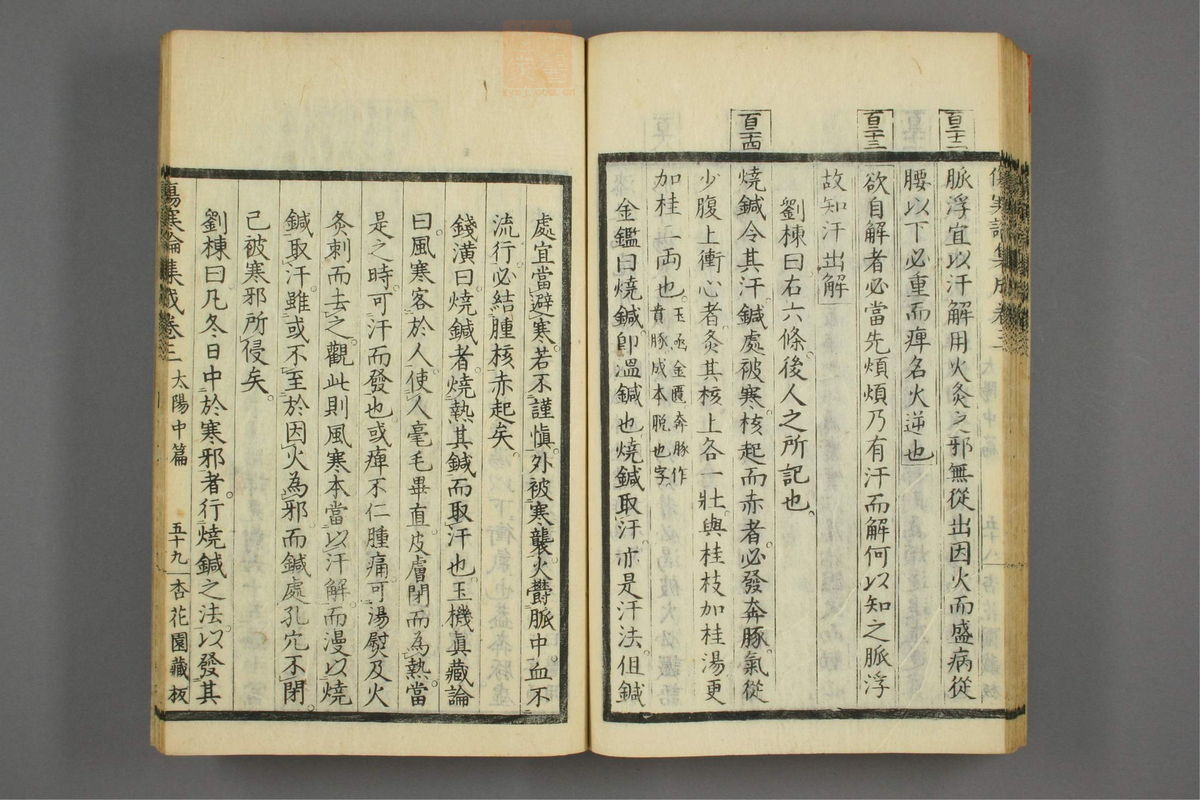 百二十二
脈浮宜以汗解用火灸之邪無從出因火而盛病從
腰以下必重而痺名火逆也
百二十三
欲自解者必當先煩煩乃有汗而解何以知之脈浮
故知汗出解
劉棟曰右六條後人之所記也
百二十四
燒鍼令其汗鍼處被寒核起而赤者必發奔豚氣從
少腹上衝心者灸其核上各一壯與桂枝加桂湯更
加桂一兩也玉函金匱奔豚作
賁豚成本脫也字
金鑑曰燒鍼卽溫鍼也燒鍼取汗亦是汗法但鍼
處宜當避寒若不謹愼外被寒襲火鬱脈中血不
流行必結腫核赤起矣
錢潢曰燒鍼者燒熱其鍼而取汗也玉機眞藏論
曰風寒客於人使人毫毛畢直皮膚閉而為熱當
是之時可汗而發也或痺不仁腫痛可湯熨及火
灸刺而去之觀此則風寒本當以汗解而漫以燒
鍼取汗雖或不至於因火為邪而鍼處孔穴不閉
已被寒邪所侵矣
劉棟曰凡冬日中於寒邪者行燒鍼之法以發其
傷寒論集成卷三 太陽中篇 五十九 杏花園藏板